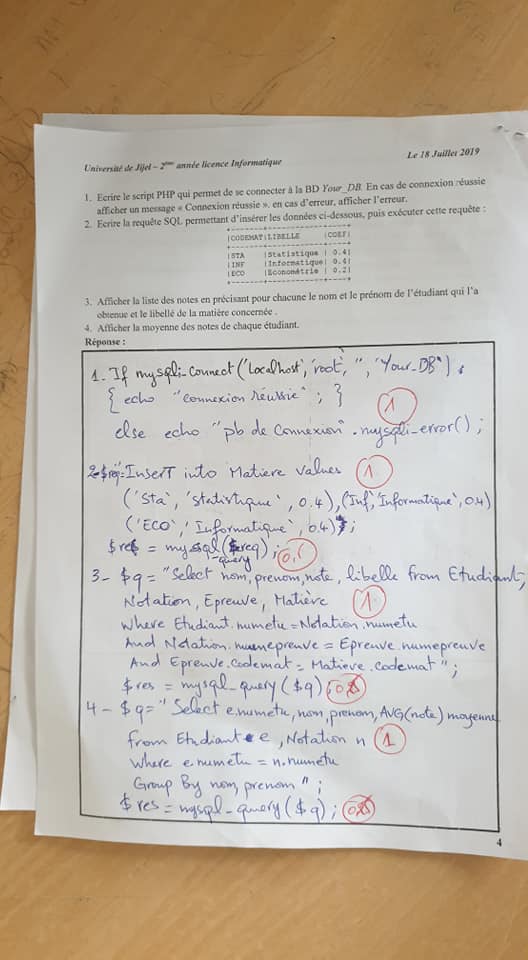 Université de Jijel – 2ème année licence Informatique
Le 18 Juillet 2019
1. Ecrire le script PHP qui permet de se connecter à la BD Your_DB. En cas de connexion réussie
afficher un message « Connexion réussie ». en cas d'erreur, afficher l'erreur.
2. Ecrire la requête SQL permettant d'insérer les données ci-dessous, puis exécuter cette requête :
+-------+------------+----+
|CODEMAT|LIBELLE |COEF|
+-------+------------+----+
|STA |Statistique | 0.4|
|INF |Informatique| 0.4|
|ECO |Econométrie | 0.2|
+-------+------------+----+
3. Afficher la liste des notes en précisant pour chacune le nom et le prénom de l'étudiant qui l'a
obtenue et le libellé de la matière concernée .
4. Afficher la moyenne des notes de chaque étudiant.
Réponse :
1. If mysqli_connect('localhost', 'root', '', 'Your_DB')
{ echo "connexion réussie" ; }
1
else echo "pb de connexion" . mysqli_error() ;
2. $req="InserT into Matiere values
1
('Sta', 'statistique', 0.4), ('Inf', 'Informatique', 0.4)
('ECO', 'Informatique', 0.4)";
$res = mysql_query($req) ;
3- $q = "Select nom, prenom, note, libelle from Etudiant,
Notation, Epreuve, Matière
1
Where Etudiant.numetu = Notation.numetu
And Notation.numepreuve = Epreuve.numepreuve
And Epreuve.codemat = Matiere.codemat" ;
$res = mysql_query($q) ;
4- $q = "Select e.numetu, nom, prenom, AVG(note) moyenne
from Etudiant e , Notation n
1
Where e.numetu = n.numetu
Group By nom, prenom" ;
$res = mysql_query($q) ;
4